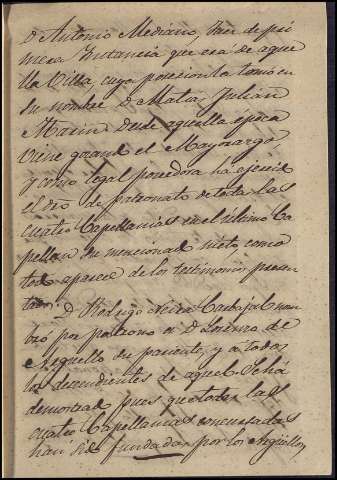 D. Antonio Mediano, Juez de pri
mera Instancia que era de aque
lla Villa, cuya posesion la tomó en
su nombre D. Matas Julian
Marin. Desde aquella época
viene el Mayorazgo,
y como legal poseedora ha ejercid
el dro de patronato de todas las
cuatro Capellanias en el último Ca
pellan su mencionad nieto como
tod aparece de los testimonios presen
tados.
D. Rodrigo Neira Carbajal nom
bró por patrono a D. Lorenzo de
Arguello su pariente, y a todos
los descendientes de aquel. Se há
demostrad pues que todas las
cuatro Capellanias espresadas
han sid fundadas por los Arguellos,